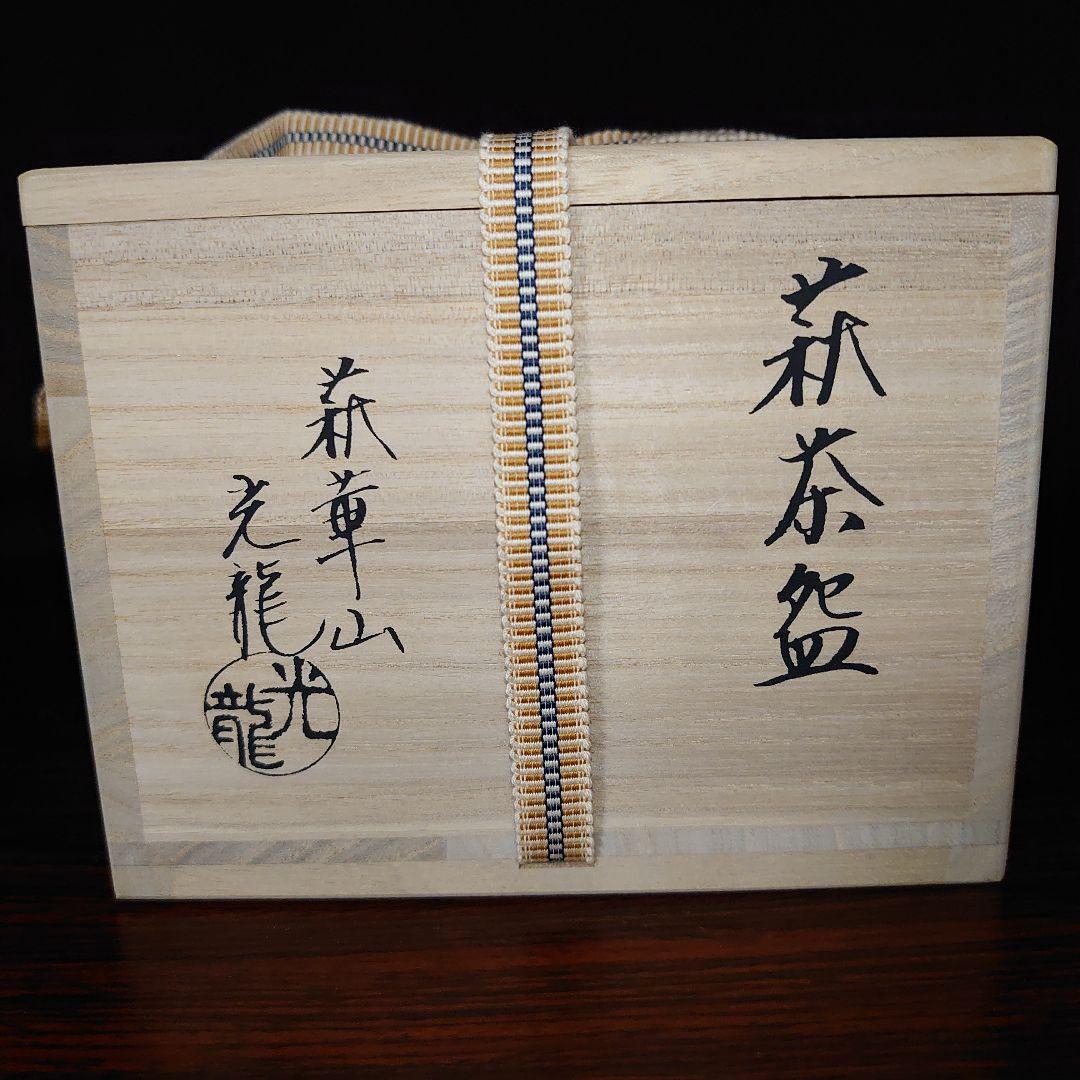 萩茶盌
萩華山
光龍
光龍